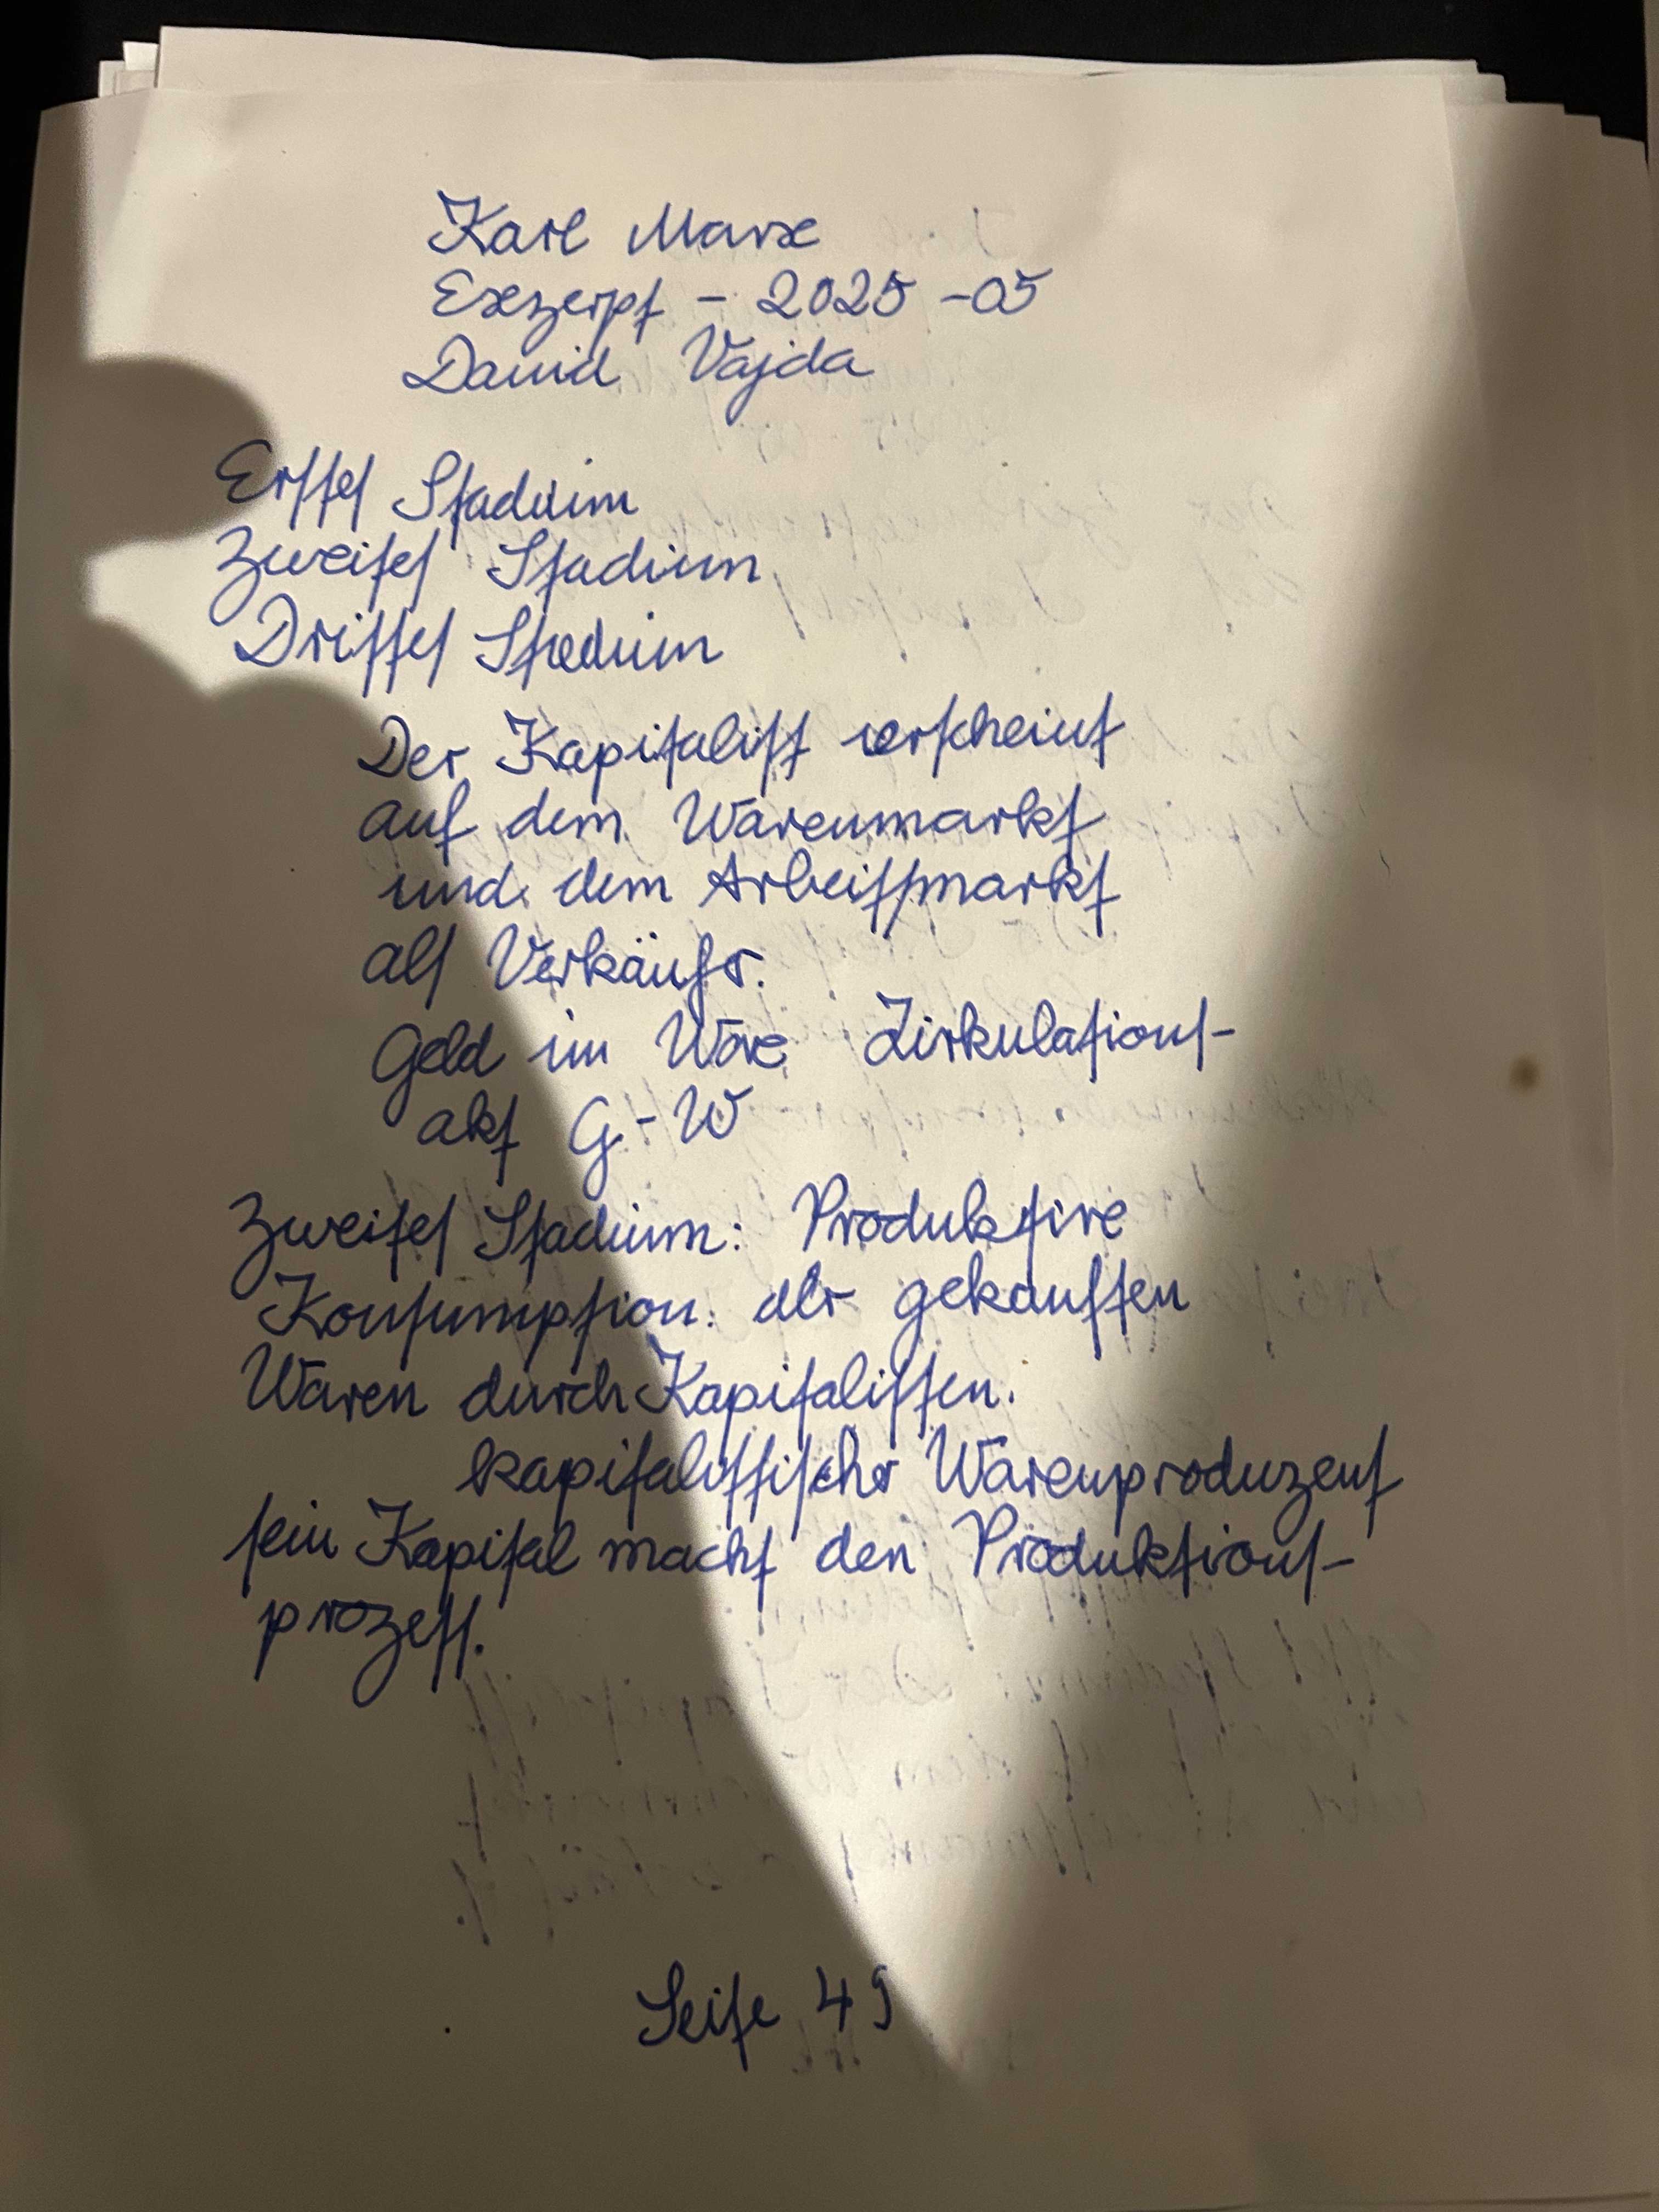 Karl Marx
Exzerpt - 2025-05
David Vajda
Erstes Stadium
Zweites Stadium
Drittes Stadium
Der Kapitalist erscheint
auf dem Warenmarkt
und dem Arbeitsmarkt
als Verkäufer.
Geld im Ware Zirkulations-
akt G-W
Zweites Stadium: Produktive
Konsumption der gekauften
Waren durch Kapitalisten.
kapitalistischer Warenproduzent
sein Kapital macht den Produktions-
prozess.
Seite 49